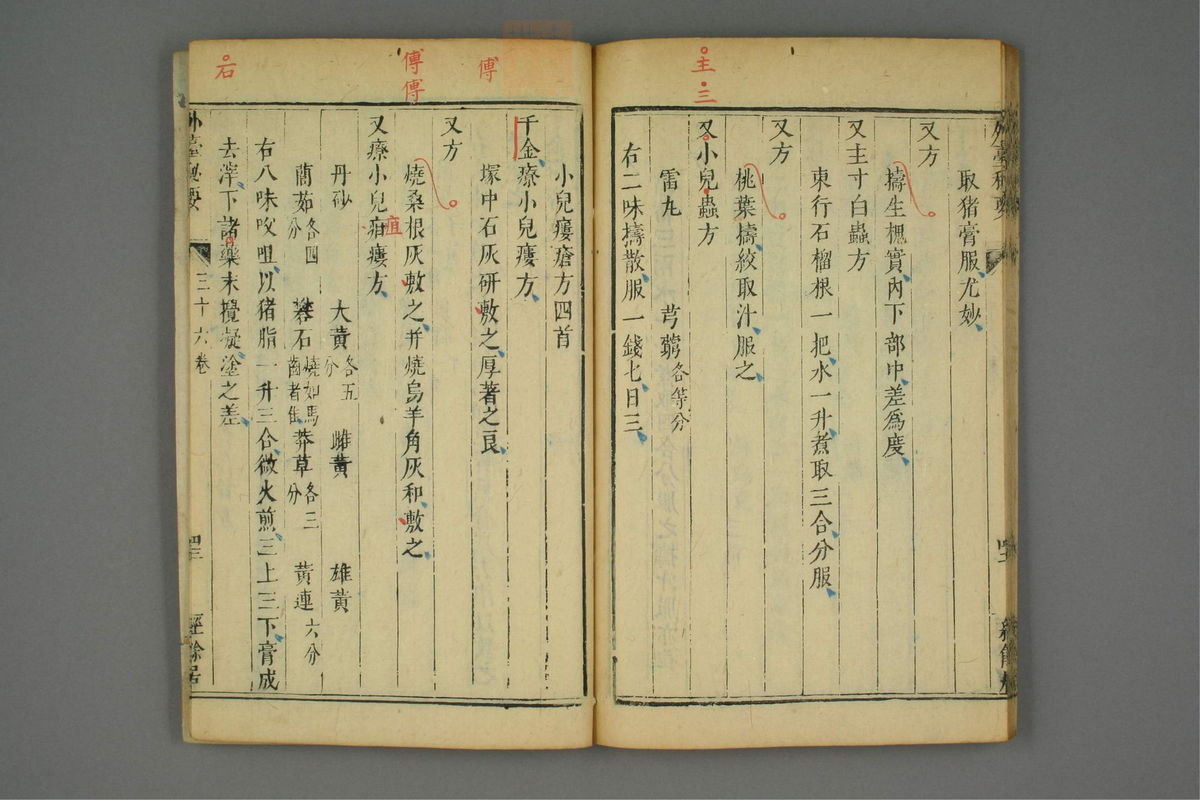 主
三
取猪膏服尤妙
又方
擣生槐實內下部中差爲度
又主寸白蟲方
東行石榴根一把水一升煮取三合分服
又方
桃葉擣絞取汁服之
又小兒蟲方
雷丸 芎藭各等分
右二味擣散服一錢匕日三
傅
傅
傅
石
小兒瘻瘡方四首
千金療小兒瘻方
塚中石灰研敷之厚著之良
又方
燒桑根灰敷之并燒烏羊角灰和敷之
又療小兒疽瘻方
疽
丹砂 大黃各五分 雌黃 雄黃
䕡茹各四分 礜石燒如馬齒者佳 莽草各三分 黃連六分
右八味㕮咀以猪脂一升三合微火煎三上三下膏成
去滓下諸藥末攪凝塗之差
外臺秘要
三十六卷
經餘居